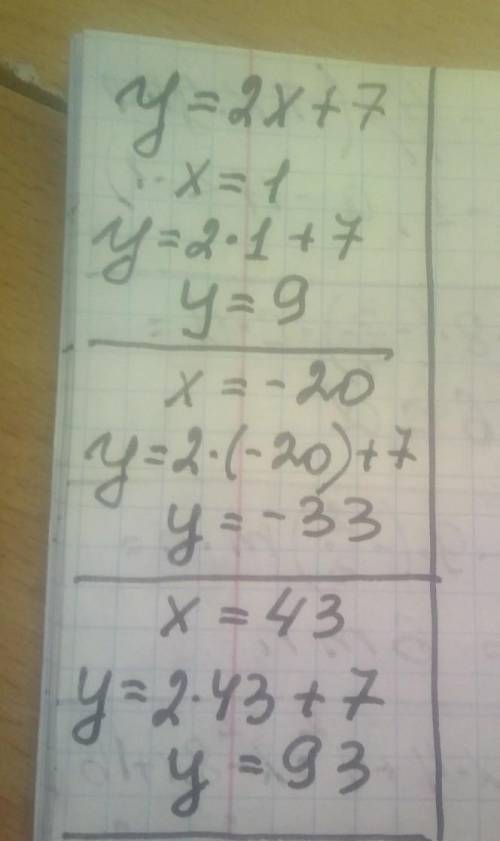 y=2x+7
x=1
y=2·1+7
y=9
x=-20
y=2·(-20)+7
y=-33
x=43
y=2·43+7
y=93